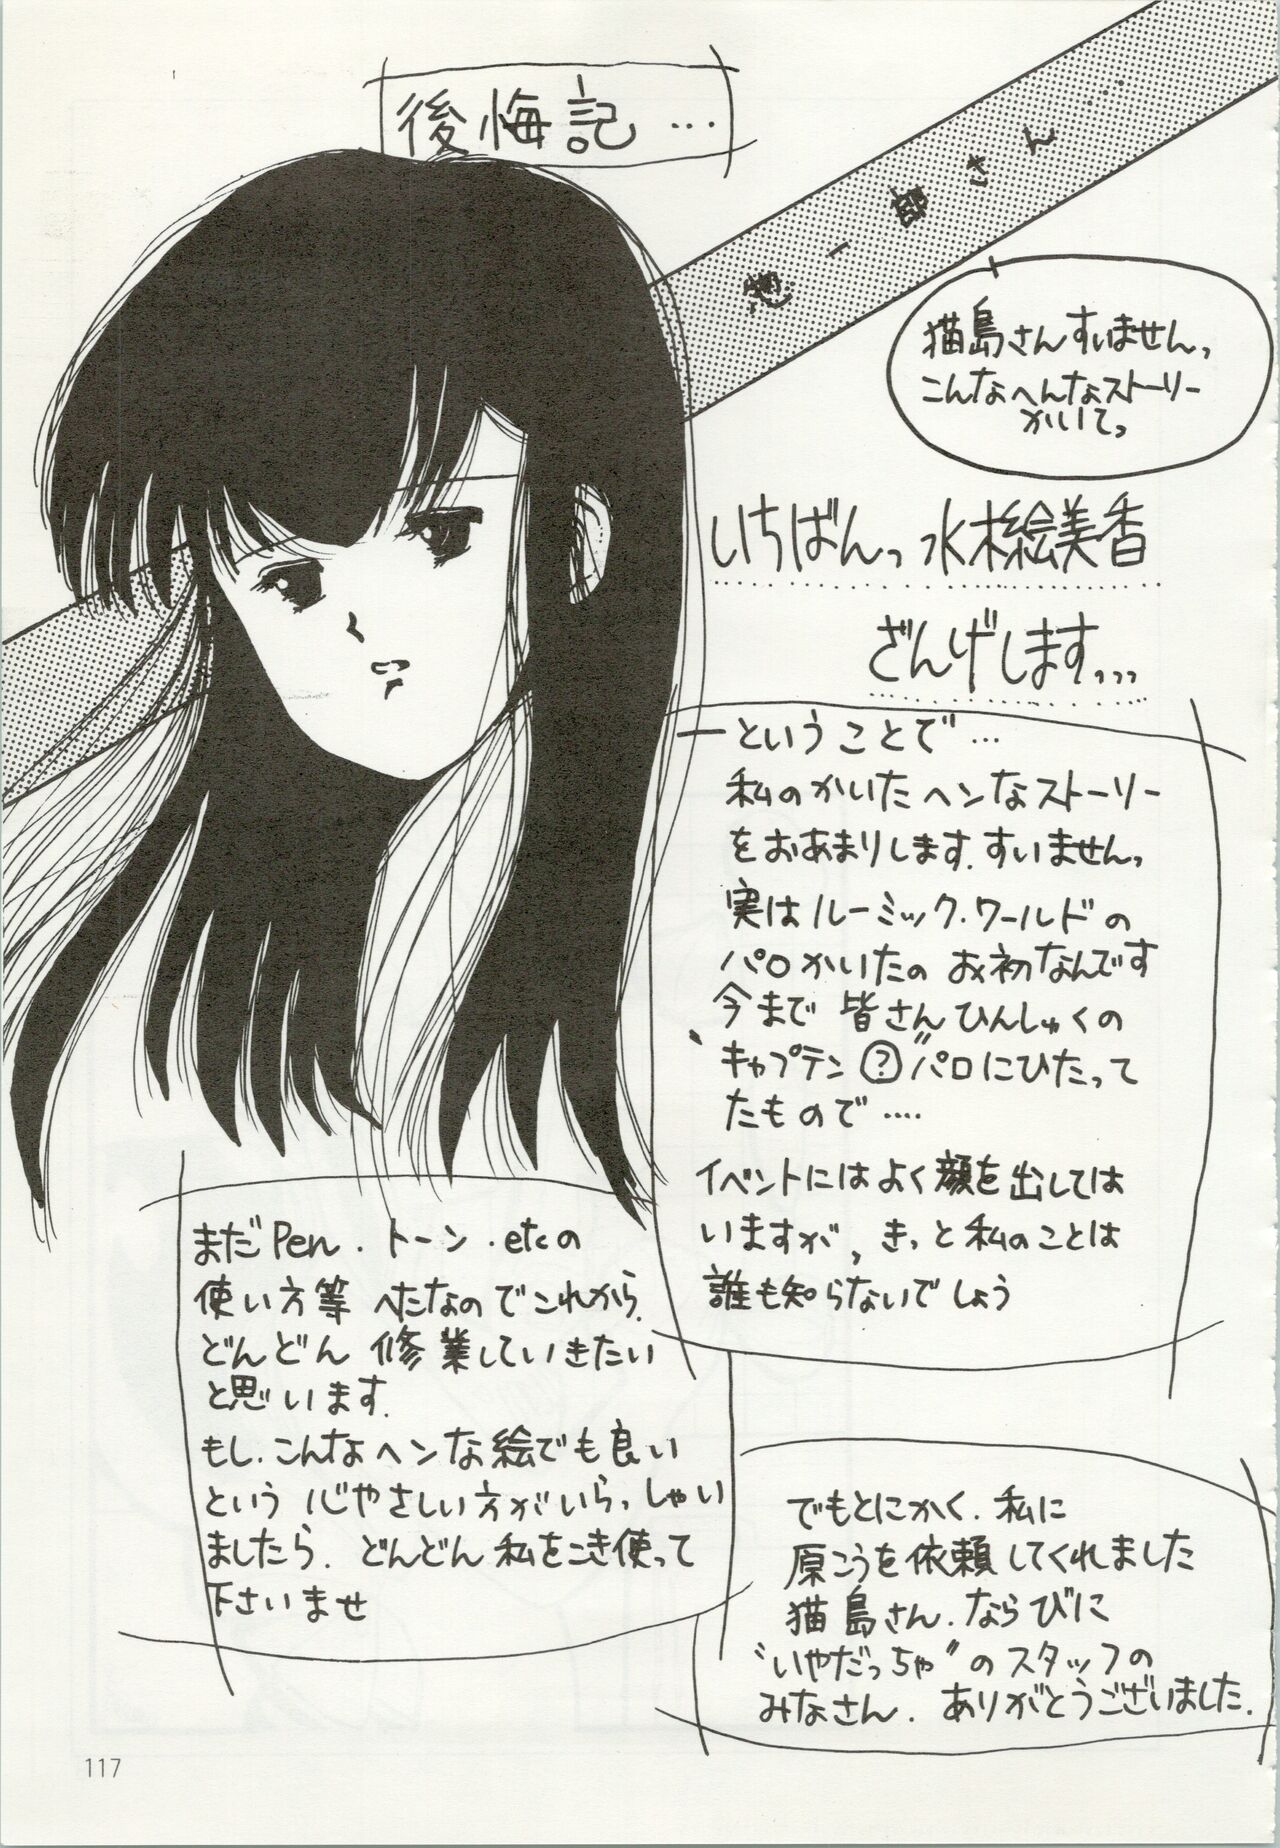 後悔記…
惣一郎さん……
猫島さんすいませんっ
こんなへんなストーリー
かいてっ
いちばんっ水木絵美香
ざんげします...
ーということで…
私のかいたヘンなストーリー
をおあまりします.すいませんっ
実はルーミック・ワールドの
パロかいたの お初なんです
今まで 皆さんひんしゅくの
〝キャプテン?〟パロにひたって
たもので‥‥
イベントにはよく顔を出しては
いますが,きっと私のことは
誰も知らないでしょう
まだPen.トーン.etcの
使い方等 へたなのでこれから.
どんどん 修業していきたい
と思います.
もし.こんなヘンな絵でも良い
という 心やさしい方がいらっしゃい
ましたら. どんどん私をこき使って
下さいませ
でもとにかく.私に
原こうを依頼してくれました
猫島さん.ならびに
〝いやだっちゃ〟のスタッフの
みなさん. ありがとうございました.
117